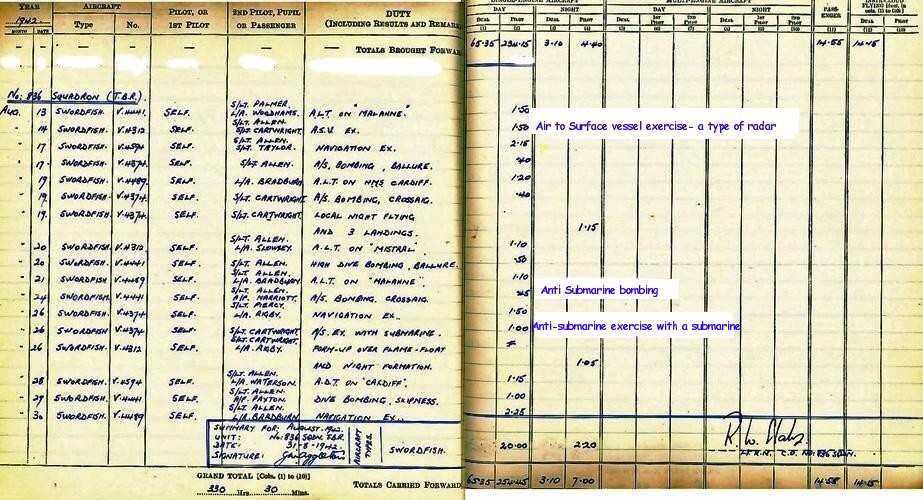 YEAR AIRCRAFT PILOT, OR 2ND PILOT, PUPIL DUTY
1942. Type No. 1ST PILOT OR PASSENGER (INCLUDING RESULTS AND REMARK
MONTH DATE
— — — — — — TOTALS BROUGHT FORWAR
No: 836 SQUADRON (T.B.R).
S/LT. PALMER.
AUG. 13 SWORDFISH. V.4441. SELF. L/A. WOODHAMS. A.L.T. ON "MALAHNE".
S/LT. ALLEN.
" 14 SWORDFISH V.4312 SELF. S/LT. CARTWRIGHT. A.S.V. EX.
S/LT. ALLEN.
" 17 SWORDFISH V.4594 SELF. S/LT. TAYLOR. NAVIGATION EX.
" 17. SWORDFISH. V.4374. SELF. S/LT. ALLEN. A/S. BOMBING, BALLURE.
" 19 SWORDFISH. V.4489. SELF. L/A. BRADBURN. A.L.T. ON HMS CARDIFF.
" 19 SWORDFISH. V.4374 SELF. S/LT. CARTWRIGHT. A/S. BOMBING, CROSSAIG.
" 19. SWORDFISH. V.4374. SELF. S/LT. CARTWRIGHT. LOCAL NIGHT FLYING
AND 3 LANDINGS.
S/LT. ALLEN.
" 20 SWORDFISH V.4312. SELF. L/A. A.L.T. ON "MISTRAL"
" 20 SWORDFISH. V.4441 SELF. S/LT. ALLEN. HIGH DIVE BOMBING, BALLURE.
S/LT. ALLEN.
" 21 SWORDFISH V.4489 SELF. L/A. BRADBURN A.L.T. ON "MALAHNE".
S/LT. ALLEN.
" 24 SWORDFISH. V.4441 SELF. A/F. MARRIOTT. A/S. BOMBING, CROSSAIG.
S/LT. PIERCY.
" 26 SWORDFISH. V.4374 SELF. L/A. RIGBY. NAVIGATION EX.
" 26 SWORDFISH. V.4374 SELF. S/LT. CARTWRIGHT. A/S. EX. WITH SUBMARINE.
S/LT. CARTWRIGHT.
" 26 SWORDFISH. V.4312 SELF. L/A. RIGBY. FORM-UP OVER FLAME-FLOAT
AND NIGHT FORMATION.
S/LT. ALLEN.
" 28 SWORDFISH. V.4594 SELF. L/A. WATERSON. A.D.T. ON "CARDIFF".
S/LT. ALLEN.
" 29 SWORDFISH. SELF. A/F. PAXTON. DIVE BOMBING, SKIPNESS.
S/LT. ALLEN.
" 30 SWORDFISH. V.4489 SELF. L/A. BRADBURN. NAVIGATION EX..
SUMMARY FOR: AUGUST. 1942.
UNIT: No: 836 SQDN. T.B.R.
DATE: 31-8-1942.
SIGNATURE:
AIRCRAFT TYPES.
SWORDFISH.
GRAND TOTAL [Cols. (1) to (10)]
330 Hrs. 30 Mins.
TOTALS CARRIED FORWARD
DAY NIGHT DAY NIGHT PASS-ENGER
DUAL PILOT DUAL PILOT DUAL 1ST PILOT 2ND PILOT DUAL 1ST PILOT 2ND PILOT DUAL PILOT
(1) (2) (3) (4) (5) (6) (7) (8) (9) (10) (11) (12) (13)
65.35 234.15 3.10 4.40 14.55 14.15
1.50
1.50 Air to Surface vessel exercise- a type of radar
2.15
.40
1.20
.40
1.15
1.10
.50
1.10
.45 Anti Submarine bombing
1.50
1.00 Anti-submarine exercise with a submarine
1.05
1.15
1.00
2.25
20.00 2.20
LT. R.N. C.O. NO: 836 SQDN.
65.35 254.45 3.10 7.00 14.55 14.15